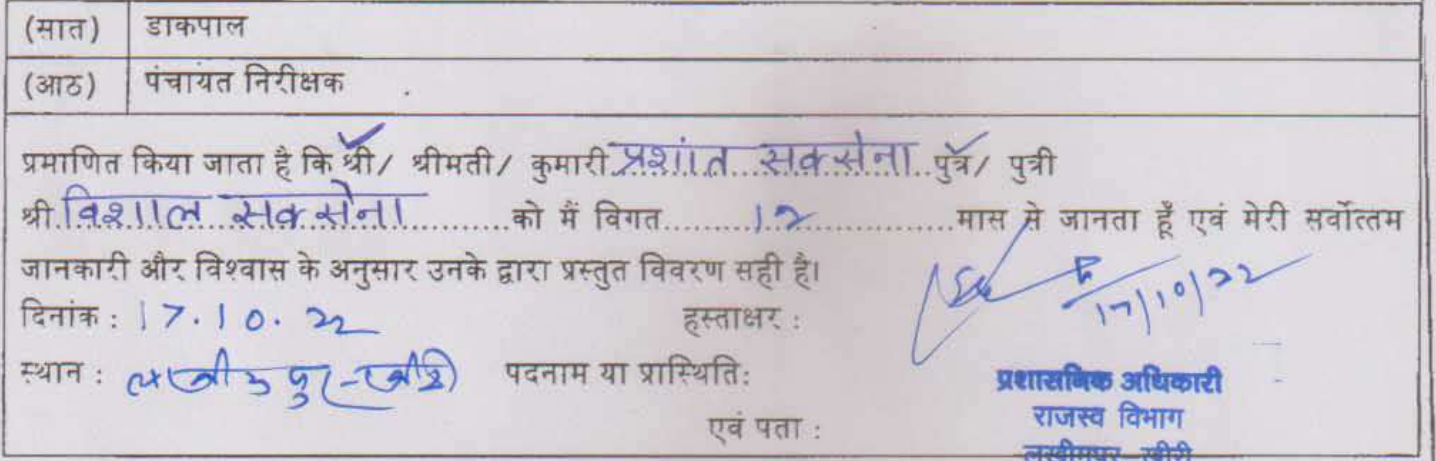 (सात) डाकपाल
(आठ) पंचायत निरीक्षक
प्रमाणित किया जाता है कि श्री/ श्रीमती/ कुमारी प्रशांत सक्सेना पुत्र/ पुत्री
श्री विशाल सक्सेना को मैं विगत 12 मास से जानता हूँ एवं मेरी सर्वोत्तम
जानकारी और विश्वास के अनुसार उनके द्वारा प्रस्तुत विवरण सही है।
17/10/22
दिनांक : 17.10.22 हस्ताक्षर :
स्थान : लखीमपुर-खीरी पदनाम या प्रास्थिति: प्रशासनिक अधिकारी
राजस्व विभाग
एवं पता :
लखीमपुर-खीरी